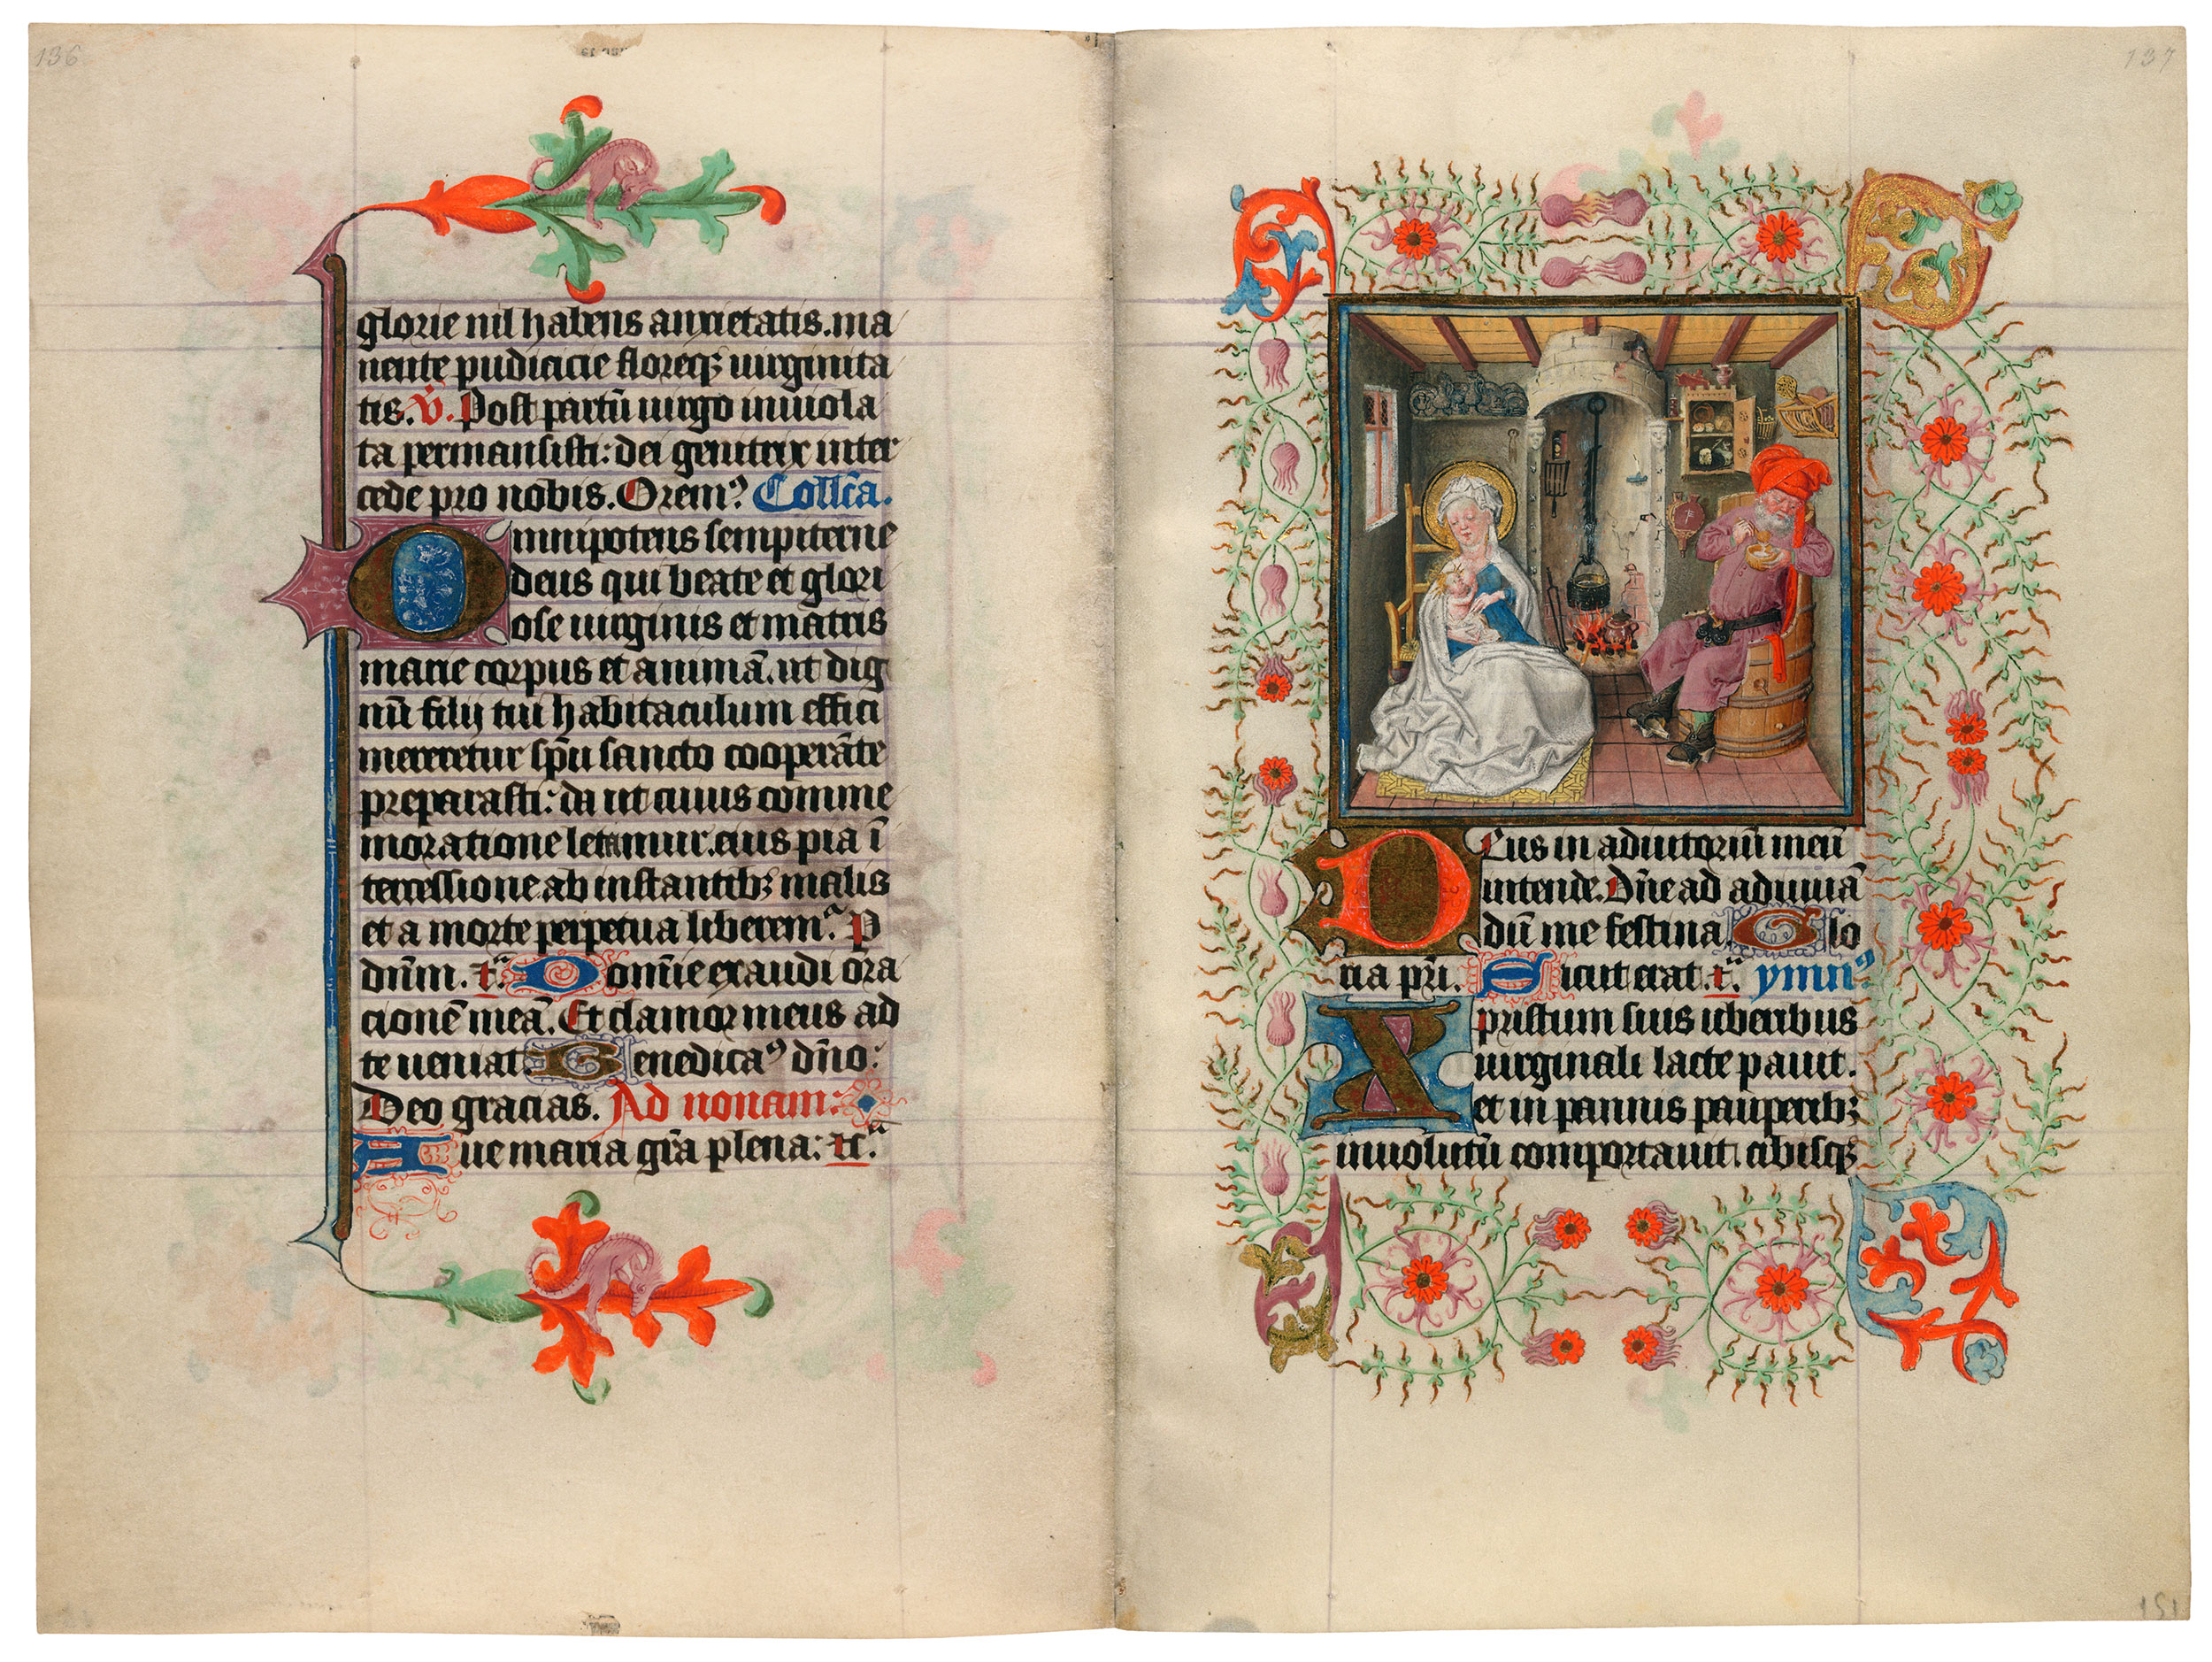 136
glorie nil habens anxietatis. ma
nente pudicicie floreqȝ uirginita
tis. V. Post partū uirgo inuiola
ta permansisti: dei genitrix inter
cede pro nobis. Oremꝰ Coll̄ca.
Omnipotens sempiterne
deus qui beate et glori
ose uirginis et matris
marie corpus et animā. ut dig
nū filij tui habitaculum effici
mereretur sp̄u sancto cooperāte
preparasti: da ut cuius comme
moratione letamur. eius pia ī
tercessione ab instantibȝ malis
et a morte perpetua liberemᷣ. P
dn̄m. ⁊c̄. Domīe exaudi ora
cionē meā. Et clamor meus ad
te ueniat. Benedicaꝰ dn̄o:
Deo gracias. Ad nonam:
Aue maria grā plena: ⁊c̄.
137
Deus in adiutoriū meū
intende. Dn̄e ad adiuuā
dū me festina. Glo
ria pr̄i. Sicut erat. ⁊c̄. ymnꝰ
Xpristum suis uberibus
uirginali lacte pauit.
et in pannis pauperibȝ
inuolutū comportauit. cibisqȝ
151